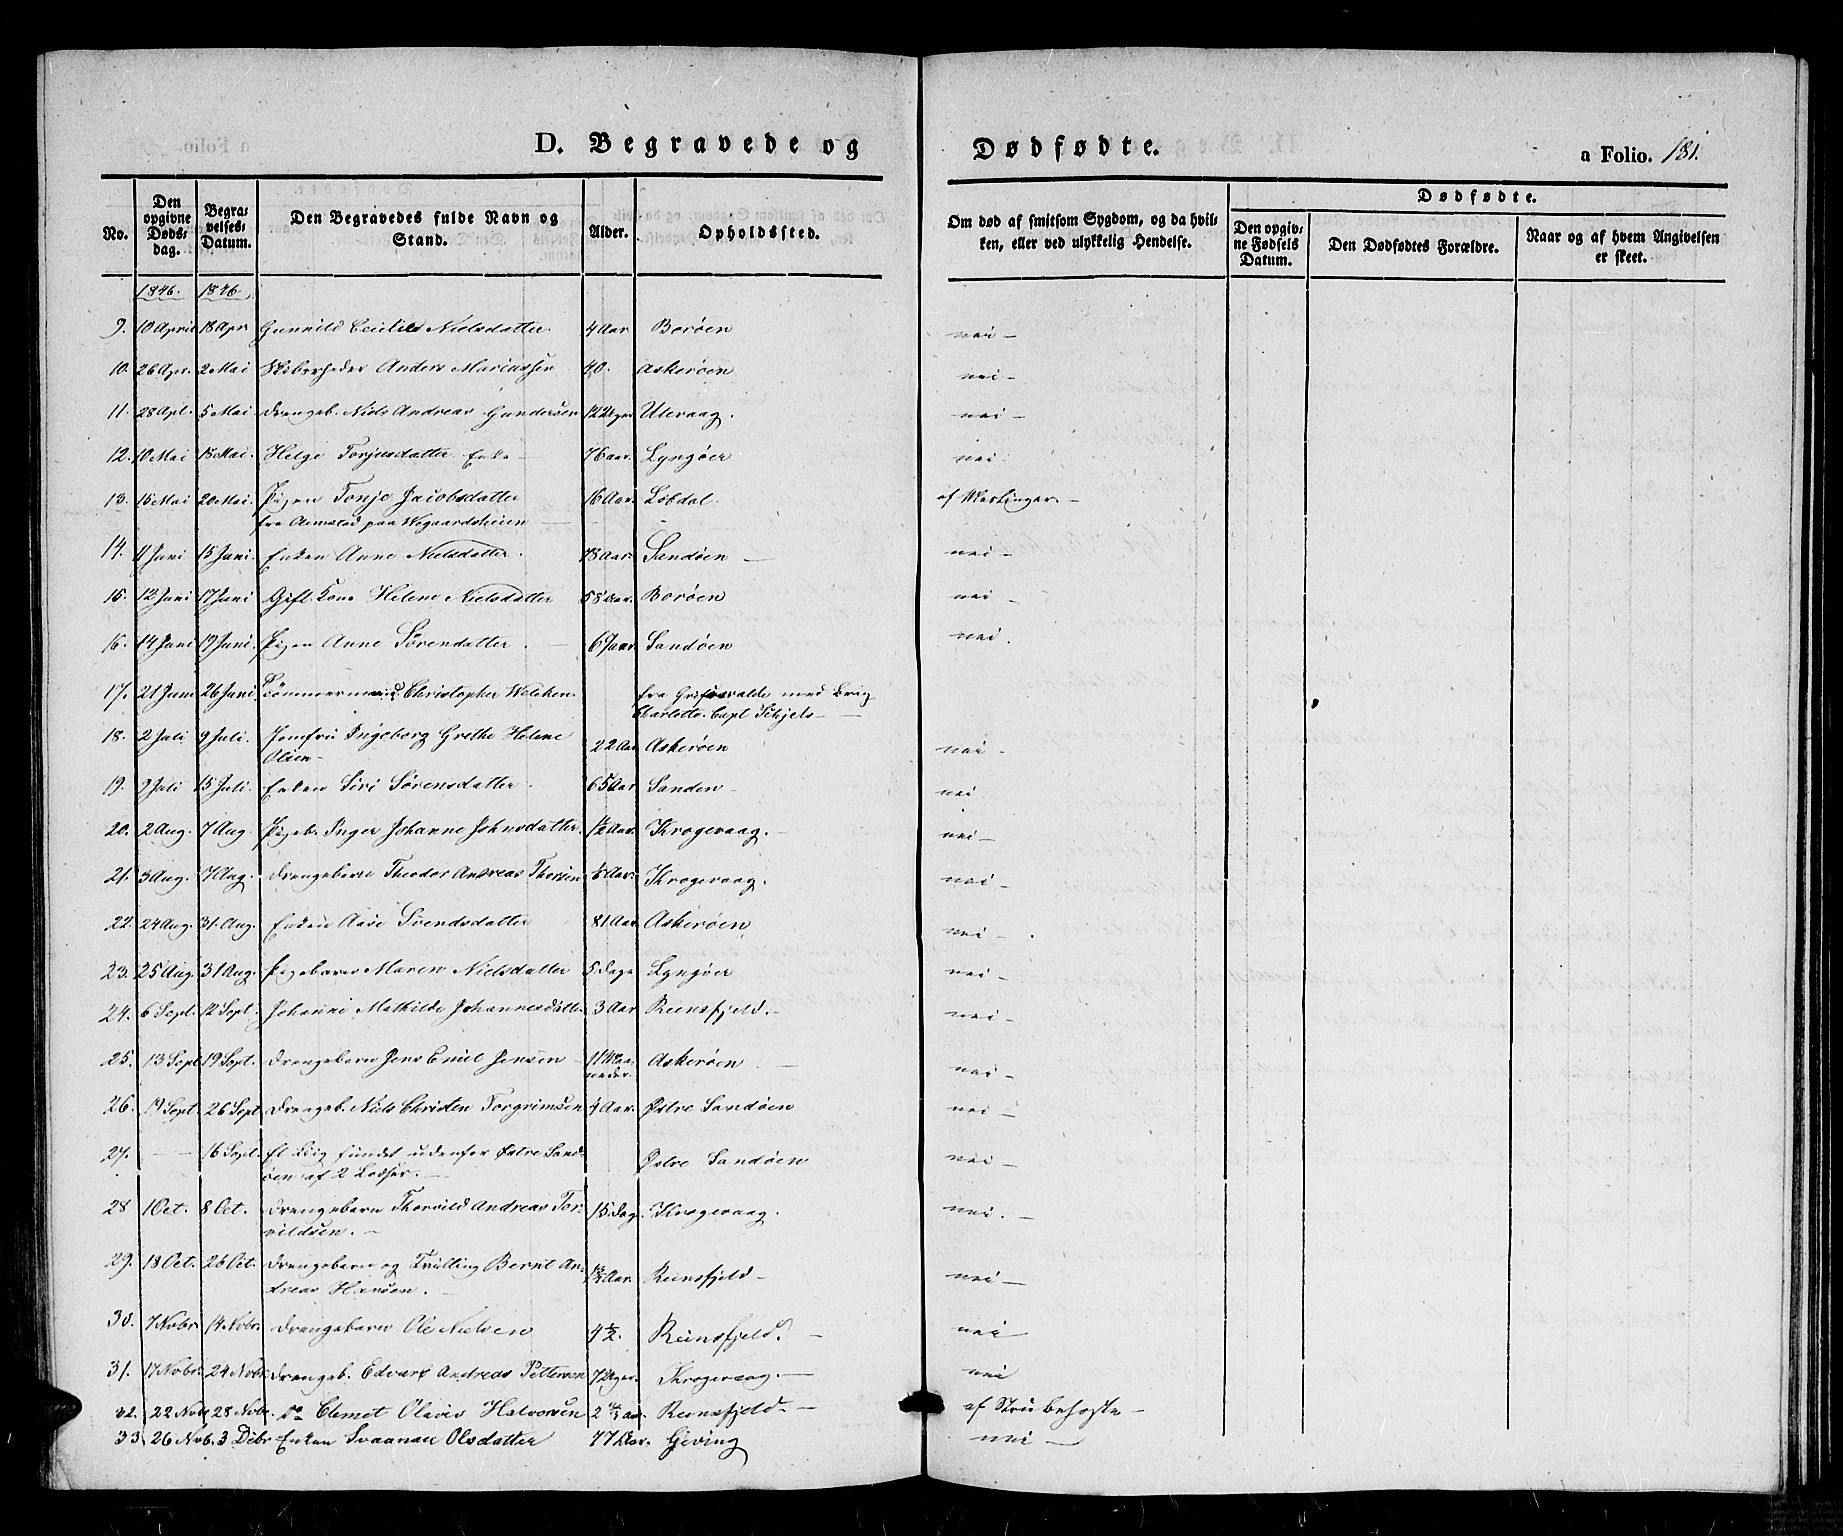 D. Begravede og
Dødfødte.
a Folio. 181.
No.
Den opgivne Døds-dag.
Begra-velses-Datum.
Den Begravedes fulde Navn og Stand.
Alder.
Opholdssted.
Om død af smitsom Sygdom, og da hvil-ken, eller ved ulykkelig Hendelse.
Dødfødte.
Den opgiv-ne Fødsels Datum.
Den Dødfødtes Forældre.
Naar og af hvem Angivelsen er skeet.
1846. 1846.
9. 10 April 18 Apr Gunnild Cecilie Nielsdatter 4 Aar Borøen nei -
10. 26 Apr. 2 Mai Skibsrheder Anders Mariussen 40. Askerøen nei -
11. 28 Apl. 5 Mai Drengeb. Niels Andreas Gundersen 12 Uger Ulevaag. nei -
12. 10 Mai 18 Mai. Helge Torjusdatter Enke - 76 aar. Lyngøer nei -
13. 15 Mai 20 Mai. Pigen Tonje Jacobsdatter 16 Aar. Løbdal. af Meslinger. -
fra paa Wegaardsheien
14. 4 Juni 15 Juni. Enken Anne Nielsdatter. 78 Aar. Sandøen - nei -
15. 12 Juni 17 Juni Gift Kone Helene Nielsdatter 58 Aar. Borøen nei -
16. 14 Juni 19 Juni. Pigen Anne Sørendatter. - 6 Aar Sandøen nei.
17. 21 Juni 26 Juni Tømmermand Christopher fra Grifswalde med Brig
Charlotte. Capt -
18. 2 Juli 9 Juli. Jomfru Ingeborg Grethe Helene
Olsen - 22 Aar Askerøen nei -
19. 9 Juli 15 Juli. Enken Siri Sørensdatter. 65 Aar Sanden - nei
20. 2 Aug. 7 Aug. Pigeb. Inger Johanne Johnsdatter. 1/2 Aar. Krogevaag. - nei -
21. 3 Aug. 7 Aug. Drengebarn Theodor Andreas Aar. Krogevaag. nei -
22. 24 Aug. 31. Aug. Enken Aase Svendsdatter 81 Aar Askerøen nei -
23. 25 Aug. 31 Aug. Pigebarn Maren Nielsdatter 5 Dage Lyngøer nei -
24. 6 Sept. 12 Sept. Johanne Mathilde Johannesdatter 3 Aar Reinsfjeld. - nei -
25. 13 Sept 19 Sept. Drengebarn Jens Emil Jensen 11 Maa-
neder. Askerøen - nei -
26. 19 Sept. 26 Sept Drengeb. Niels Christen Torgrimsen 4 Aar. Østre Sandøen nei -
27. - - 16 Sept. Et Liig fundet udenfor Østre Sand-
øen af 2 Lodser. - Østre Sandøen nei -
28 1 Oct. 8 Oct. Drengebarn Thorvild Andreas Tor-
vildsen. - 15 Dag. Krogevaag. nei. -
29. 18 Oct. 26 Oct. Drengebarn og Trilling Bernt An-
dreas Hansen. - Aar Reinsfjeld - nei -
30. 7 Nobr 14 Nobr. Drengebarn Ole Nielsen 4 1/2. Reinsfjeld. - nei
31. 17 Nobr. 24 Nobr. Drengeb. Edvard Andreas Pettersen 7 Uger. Krogevaag. - nei
32. 22 Nobr 28 Nobr. Do Clemet Olaus Halvorsen Reinsfjeld. - af Strubehoste -
33. 26 Nob. 3 Debr Enken Svaanau Olsdatter 77 Aar. Gieving nei -